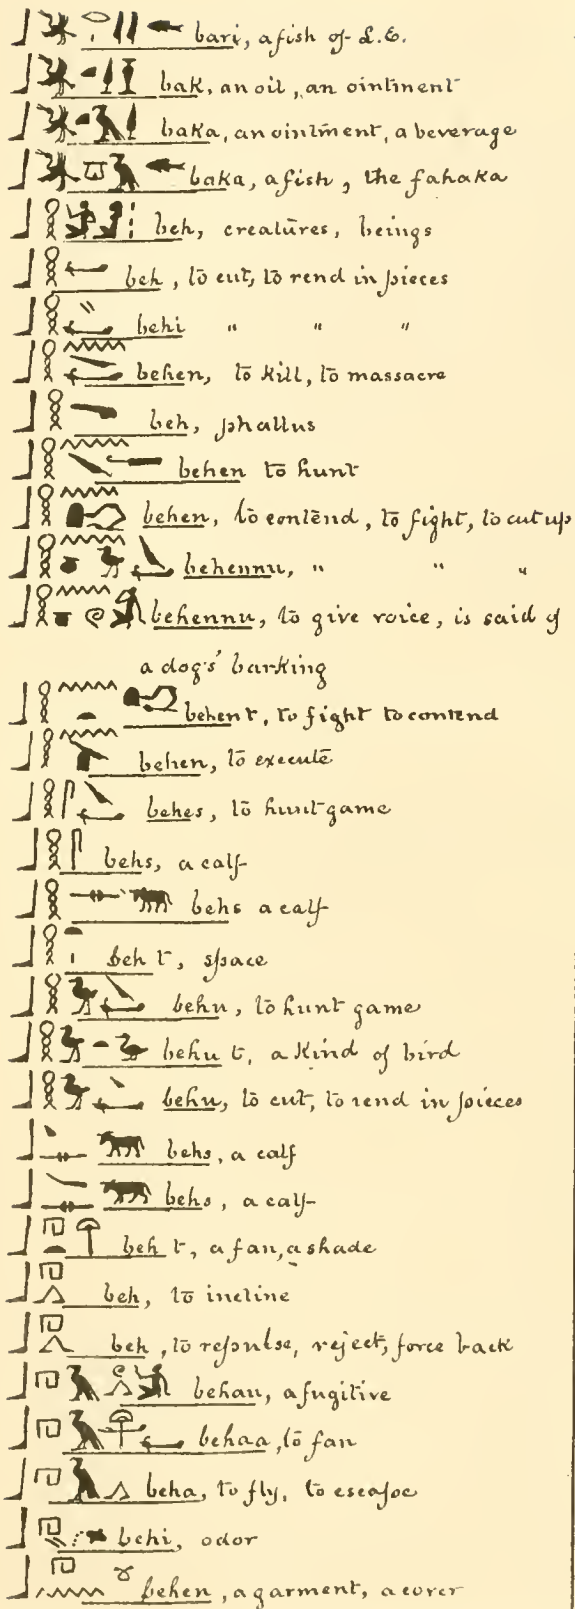 bari, a fish of L.E.
bak, an oil, an ointment
baka, an ointment, a beverage
baka, a fish, the fahaka
beh, creatures, beings
beh, to cut, to rend in pieces
behi " " "
behen, to kill, to massacre
beh, phallus
behen to hunt
behen, to contend, to fight, to cut up
behennu, " " "
behennu, to give voice, is said of
a dogs' barking
behent, to fight to contend
behen, to execute
behes, to hunt game
behs, a calf
behs a calf
beh t, space
behu, to hunt game
behu t, a kind of bird
behu, to cut, to rend in pieces
behs, a calf
behs, a calf
beh t, a fan, a shade
beh, to incline
beh, to repulse, reject, force back
behau, a fugitive
behaa, to fan
beha, to fly, to escape
behi, odor
behen, a garment, a cover